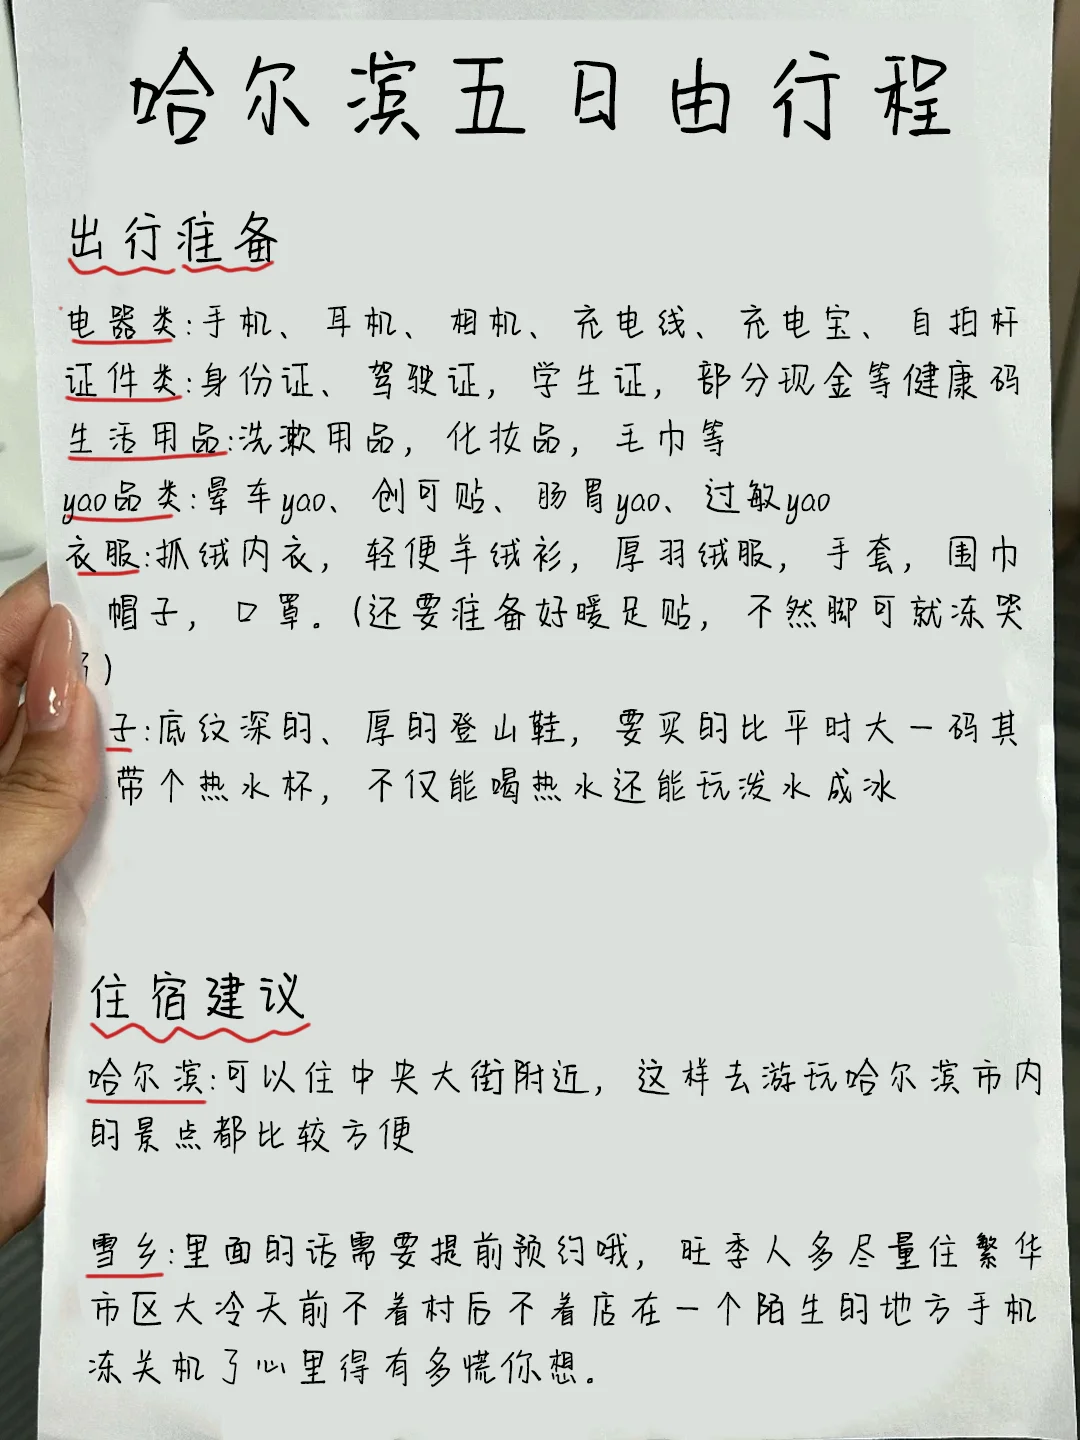 哈尔滨五日由行程
出行准备
电器类:手机、耳机、相机、充电线、充电宝、自拍杆
证件类:身份证、驾驶证，学生证，部分现金等健康码
生活用品:洗漱用品，化妆品，毛巾等
yao品类:晕车yao、创可贴、肠胃yao、过敏yao
衣服:抓绒内衣，轻便羊绒衫，厚羽绒服，手套，围巾
帽子，口罩。(还要准备好暖足贴，不然脚可就冻哭
)
子:底纹深的、厚的登山鞋，要买的比平时大一码其
带个热水杯，不仅能喝热水还能玩泼水成冰
住宿建议
哈尔滨:可以住中央大街附近，这样去游玩哈尔滨市内
的景点都比较方便
雪乡:里面的话需要提前预约哦，旺季人多尽量住繁华
市区大冷天前不着村后不着店在一个陌生的地方手机
冻关机了心里得有多慌你想。